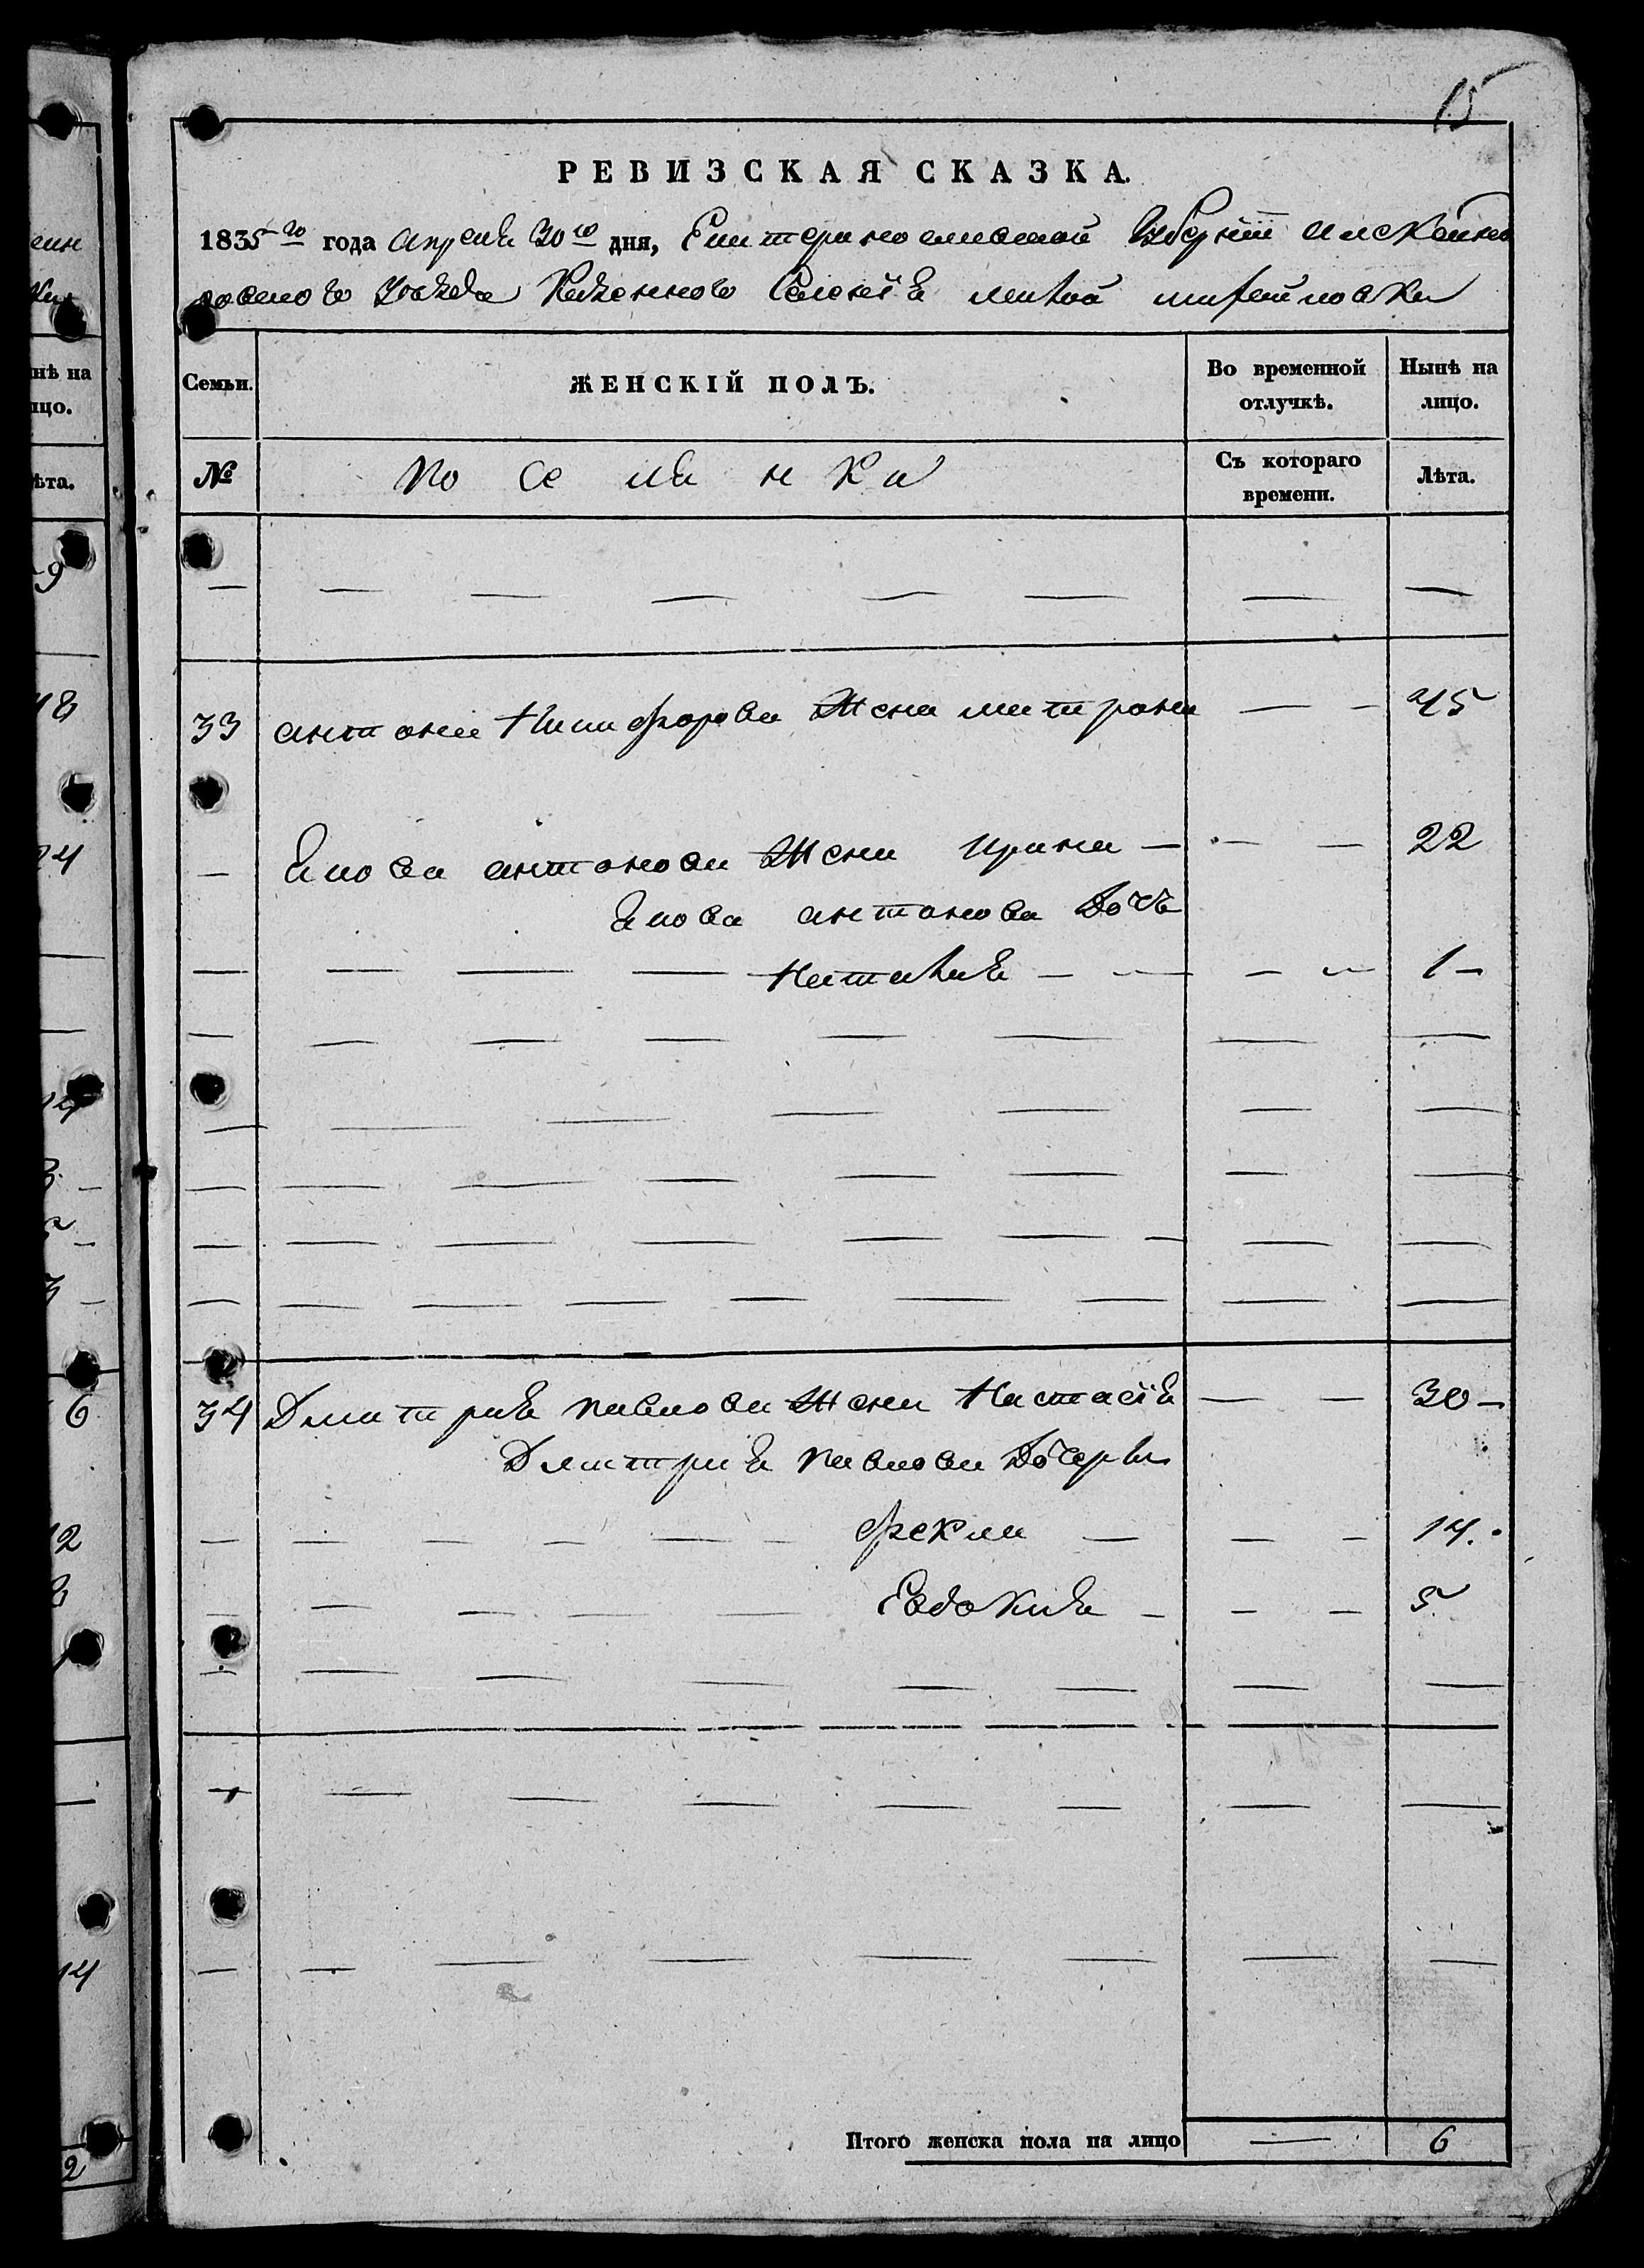 15
РЕВИЗСКАЯ СКАЗКА.
1835го года апреля 30го дня, Екатеринославской Губернiи Александ
ровского уезда Казенного Селенiя малой михайловки
Семьи.
ЖЕНСКІЙ ПОЛЪ.
Во временной отлучкѣ.
Нынѣ на лицо.
№
Поселянки
Съ котораго времени.
Лѣта.
33 антона Никифорова Жена матрона — — 45
— антонова Жена Ирина — — — 22
антонова Дочь
— — — — Наталия — — — — 1 —
34 Дмитрия павлова Жена Настасiя — — 30 —
Дмитрия павлова Дочери
— — — — — — Фекла — — — 14.
— — — — — Евдокия — — — 5
Итого женска пола на лицо — 6